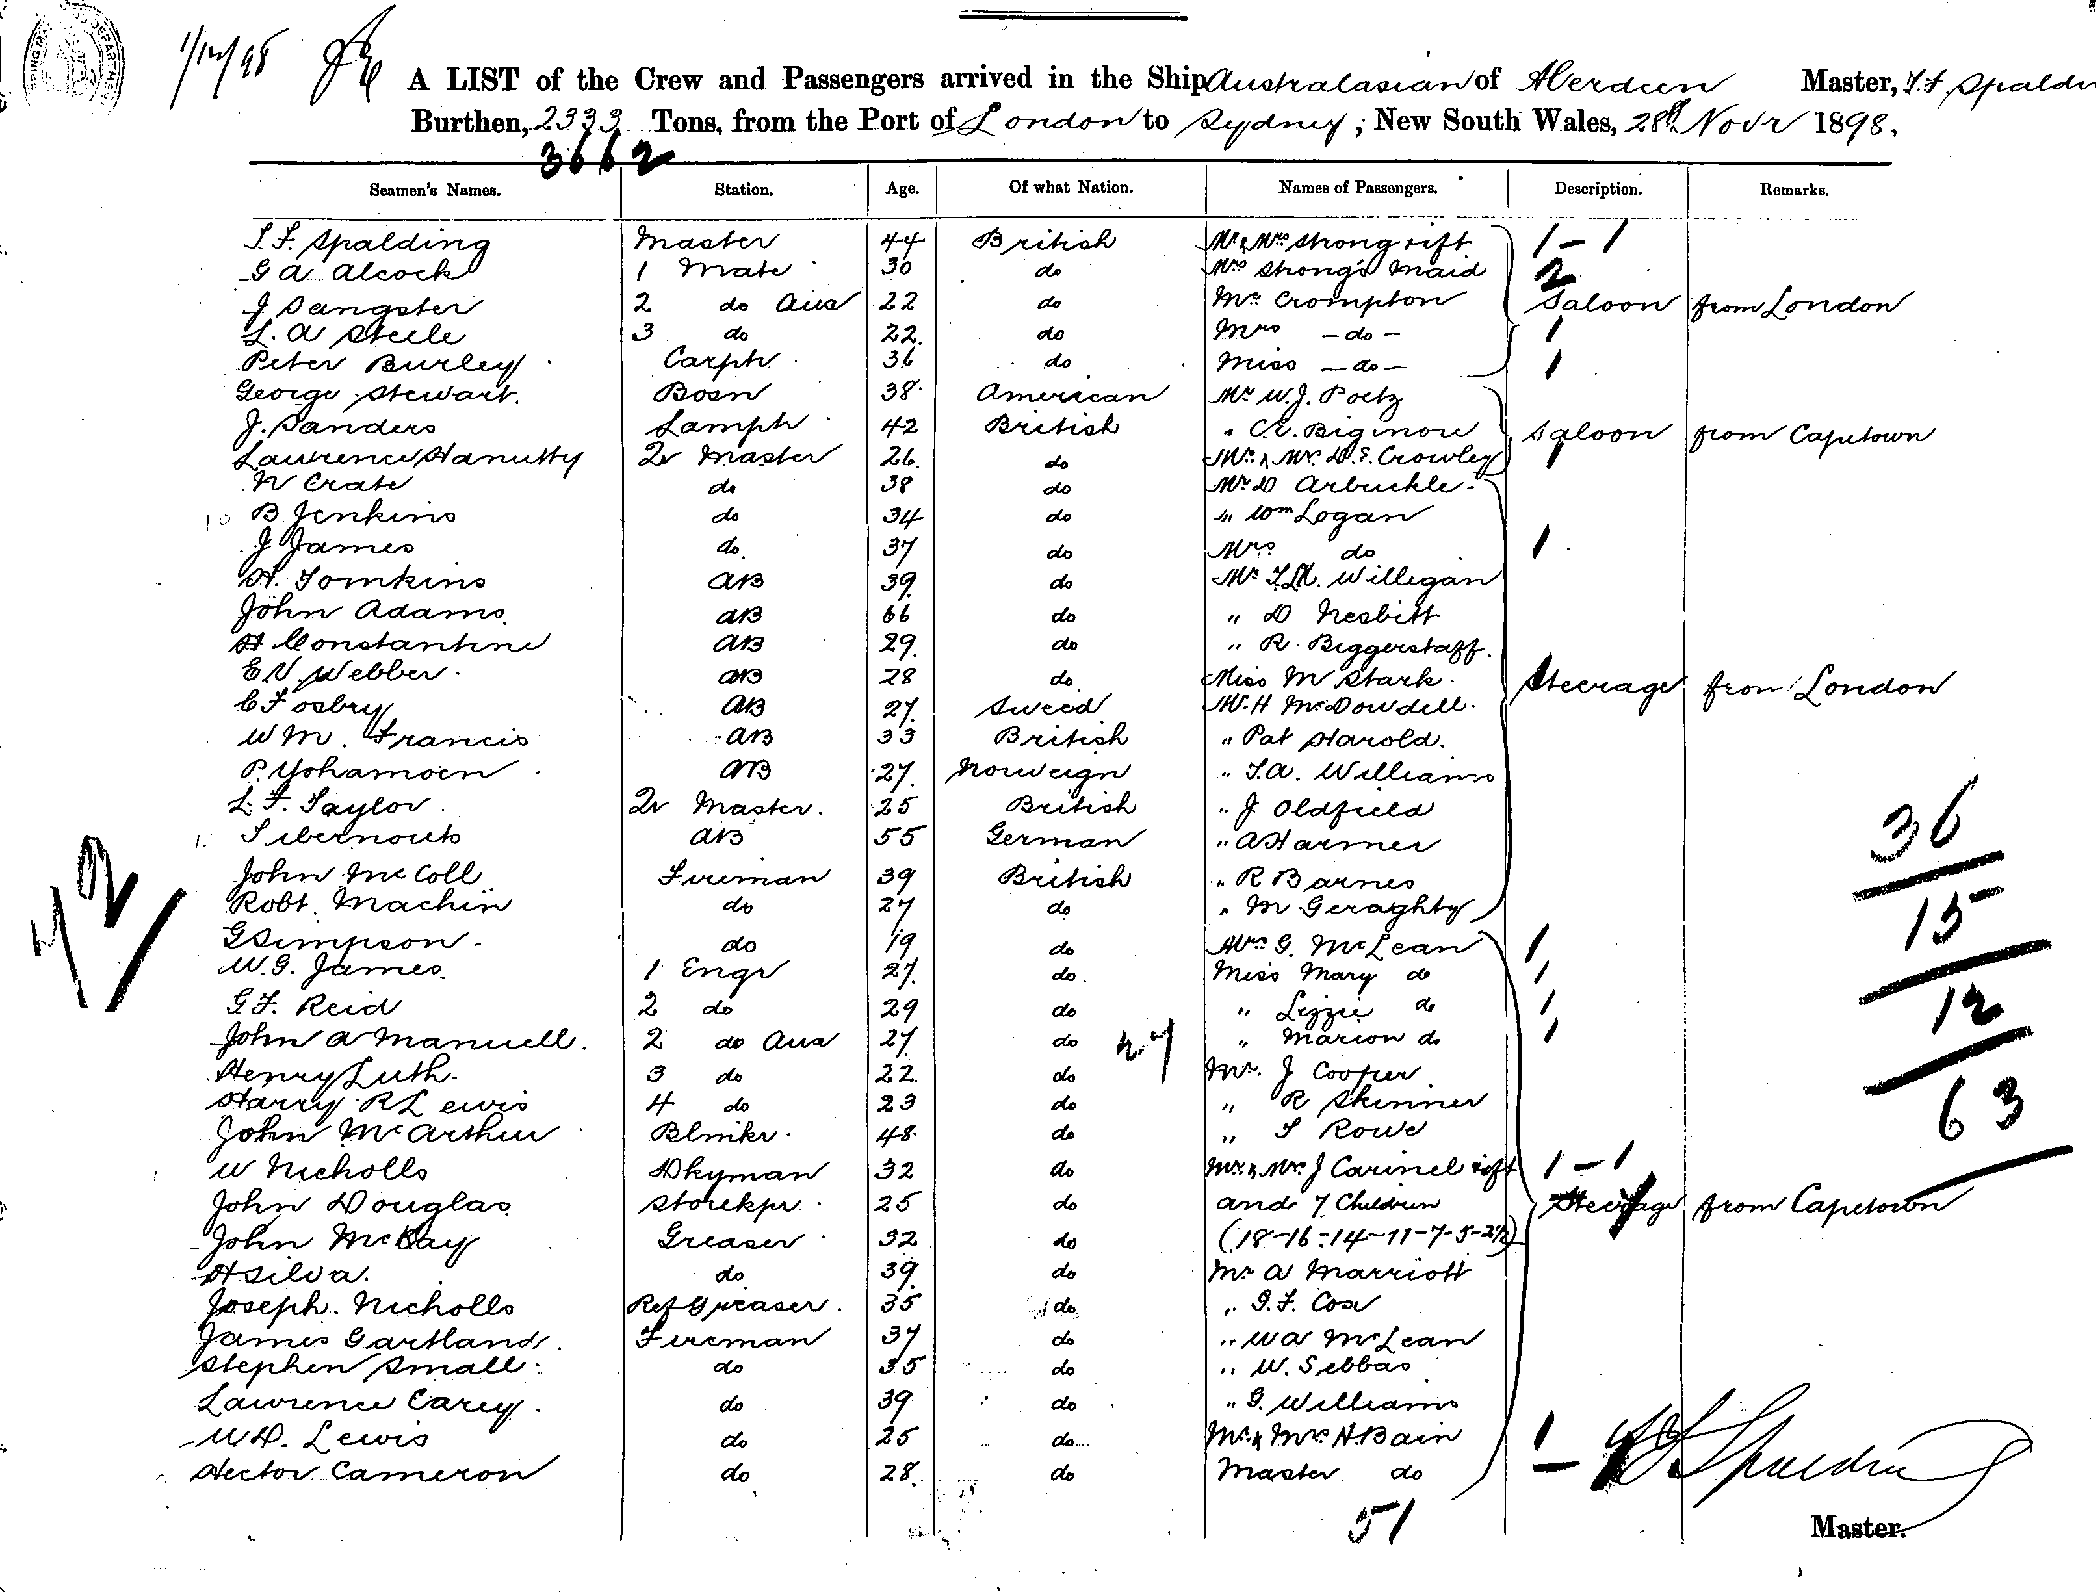 1/12/98
A LIST of the Crew and Passengers arrived in the Ship Australasian of Aberdeen Master, T.F Spaldin
Burthen, 2333 Tons, from the Port of London to Sydney, New South Wales, 28th Novr 1898.
3662
Seamen's Names. Station. Age. Of what Nation. Names of Passengers. Description. Remarks.
T. F. Spalding Master 44 British Mr & Mrs Strong 1 - 1
G A Alcock 1 Mate 30 do Mrs Strong's Maid 2
J Sangster 2 do Aux 22 do Mr Crompton Saloon from London
L. A Steele 3 do 22 do Mrs - do - 1
Peter Burley Carptr 36 do Miss - do - 1
George Stewart. Bosn 38 American Mr W. J. Poetz
J. Sanders Lamptr 42 British " C. E. Biginore Saloon from Capetown
Lawrence Hanutty Qr Master 26 do Mr & Mrs D. E. Crowley 1
N Crate do 38 do Mr D Arbuckle.
10 B Jenkins do 34 do " Wm Logan
J James do 37 do Mrs do 1
H. Tomkins AB 39 do Mr Willigan
John Adams AB 66 do " D Nesbitt
H Constantine AB 29 do " R. Biggerstaff.
E V Webber. AB 28 do Miss M Stark. Steerage from London
C F osbry AB 27 Sweed W. H McDowdell.
W M. Francis AB 33 British " Pat Harold.
P. Yohamoen AB 27 Norweign " T. A. Williams
L. F. Taylor Qr Master. 25 British " J Oldfield
Sibernouts AB 55 German " A Harmer
John McColl Fireman 39 British " R Barnes
Robt. Machin do 27 do " M Geraghty
G Simpson do 19 do Mrs G. McLean 1
W. G. James. 1 Engr 27 do Miss Mary do 1
G. F. Reid 2 do 29 do " Lizzie do 1
John A Manuell. 2 do Aux 27 do " Marion do 1
Henry Luth. 3 do 22 do Mr. J Cooper
Harry R Lewis 4 do 23 do " R Skinner
John McArthur Blmkr. 48 do " T Rowe
W Nicholls Dkyman 32 do Mr & Mrs J Carinel 1 - 1
John Douglas Storekpr. 25 do and 7 Children Steerage from Capetown
John McKay Greaser 32 do (18-16-14-11-7-5-2½)
H Silva. do 39 do Mr A Marriott
Joseph. Nicholls Ref Greaser. 35 do " G. F. Cox
James Gartland. Fireman 37 do " W A McLean
Stephen Small do 35 do " W. Sebbas
Lawrence Carey. do 39 do " G. Williams
W D. Lewis do 25 do Mr & Mrs H. Bain 1
Hector Cameron do 28. do Master do
42
36
15
12
63
51
Spalding
Master.